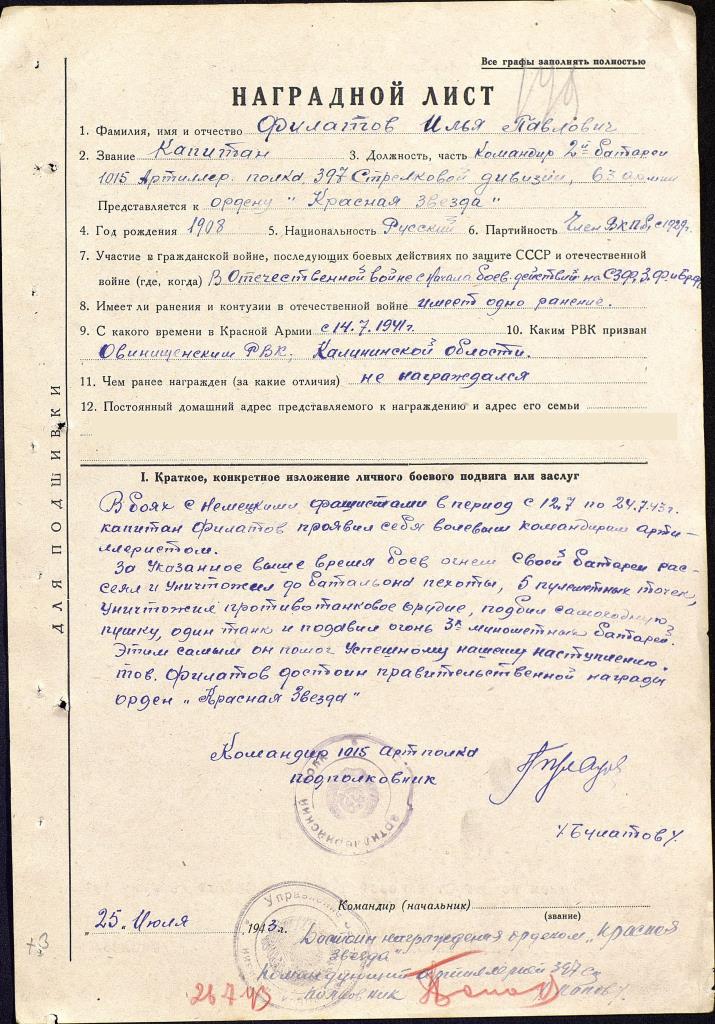 Все графы заполнять полностью
НАГРАДНОЙ ЛИСТ
1. Фамилия, имя и отчество Филатов Илья Павлович
2. Звание Капитан 3. Должность, часть Командир 2й батареи
1015 Артиллер. полка, 397 Стрелковой дивизии, 63 армии
Представляется к ордену "Красная Звезда"
4. Год рождения 1908 5. Национальность Русский 6. Партийность Член ВКПб, с 1929г.
7. Участие в Гражданской войне, последующих боевых действиях по защите СССР и отечественной
войне (где, когда) В Отечественной войне с начала боев. действий на СЗФ, З.Ф. и БрФ
8. Имеет ли ранения и контузии в отечественной войне имеет одно ранение.
9. С какого времени в Красной Армии с 14.7.1941г. 10. Каким РВК призван
Овинищенским РВК, Калининской области.
11. Чем ранее награжден (за какие отличия) не награждался
12. Постоянный домашний адрес представляемого к награждению и адрес его семьи
ДЛЯ ПОДШИВКИ
I. Краткое, конкретное изложение личного боевого подвига или заслуг
В боях с немецкими фашистами в период с 12.7 по 24.7.43г.
капитан Филатов проявил себя волевым командиром арти-
ллеристом.
За указанное выше время боев огнем своей батареи рас-
сеял и уничтожил до батальона пехоты, 5 пулеметных точек,
уничтожил противотанковое орудие, подбил самоходную
пушку, один танк и подавил огонь 3х минометных батарей.
Этим самым он помог успешному нашему наступлению.
тов. Филатов достоин правительственной награды
орден "Красная Звезда"
Командир 1015 Артполка
подполковник
/Булатов/
Командир (начальник)
(звание)
"25" Июля 1943г.
Достоин награждения орденом "Красная
Звезда"
Командующий артиллерией 397 сд
полковник /Попов/
26.7.43
+3